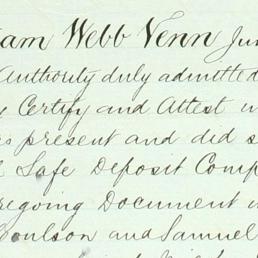 am Webb Venn Jun
Authority duly admitted
Certify and Attest
present and did s
Safe Deposit Comp
regoing Document
oulson and Samuel